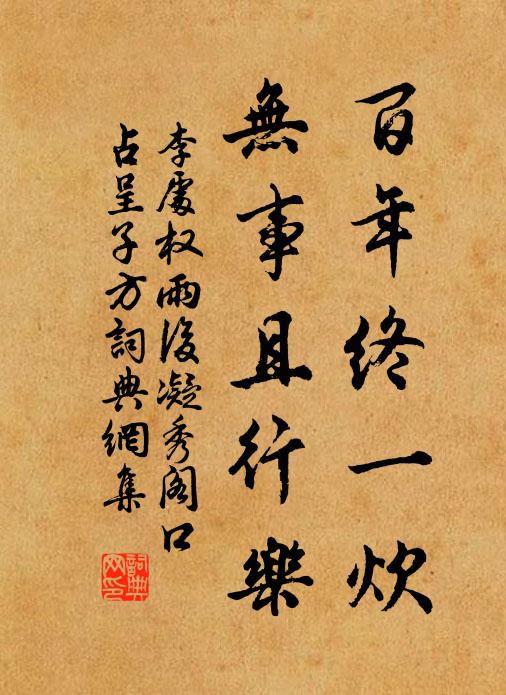 百年終一炊
無事且行樂
李處权雨後凝秀阁口
占呈子方詞典網集
詞典网印